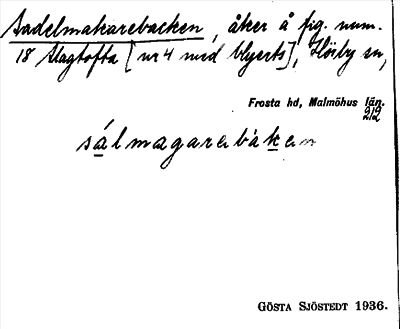 Sadelmakarebacken, åker å fig. num.
18 Slagtofta [nr 4 med blyerts], Hörby sn,
Frosta hd, Malmöhus län.
212
sálmagarabakan
GÖSTA SJÖSTEDT 1936.